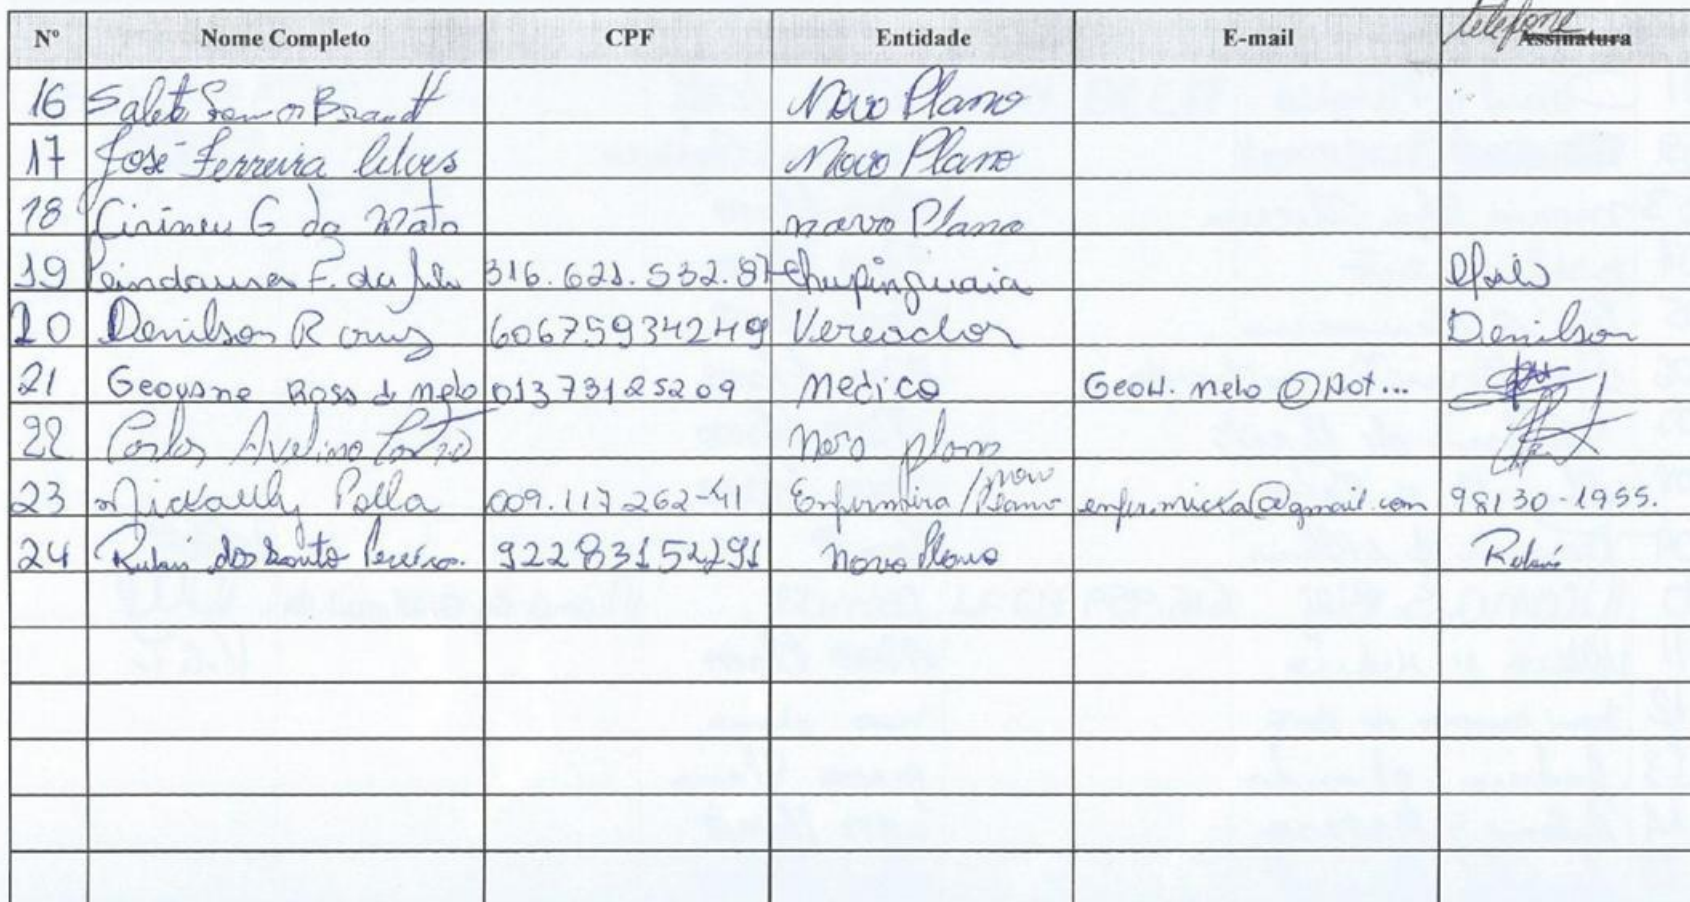 telefone
Nº Nome Completo CPF Entidade E-mail Assinatura
16 Salete Brandt Novo Plano
17 José Ferreira Alves Novo Plano
18 Cirineu G da Mata novo Plano
19 F. da 316.621.532.87 Chupinguaia
20 Denilson R cruz 60675934249 Vereador Denilson
21 Geoysne Rosa d melo 01373125209 medico Geow. melo @Hot...
22 Carlos Avelino novo plano
23 Mickaelly Polla 009.117262-41 Enfermeira / novo Plano enfer.micka@gmail.com 98130-1955.
24 Rubens dos Santo Pereira. 92283152291 novo Plano